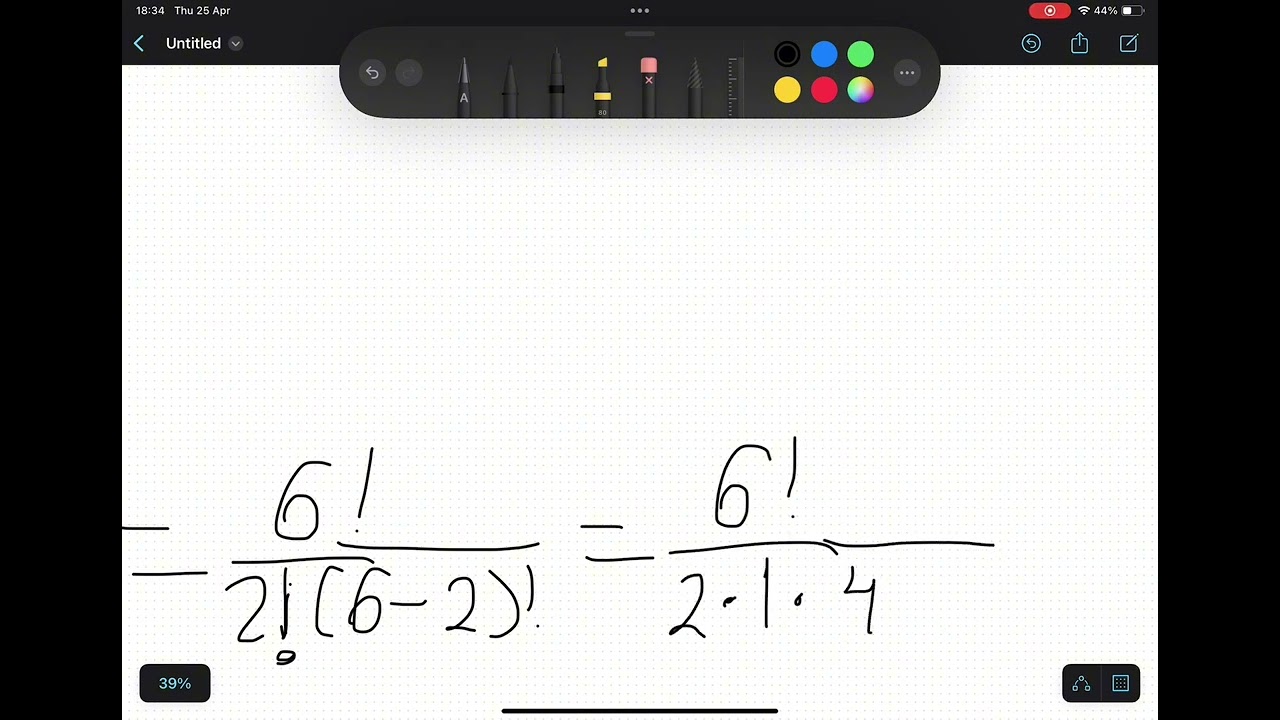 18:34 Thu 25 Apr
44%
Untitled
A
80
= 6! / 2!(6-2)! = 6! / 2·1·4
39%